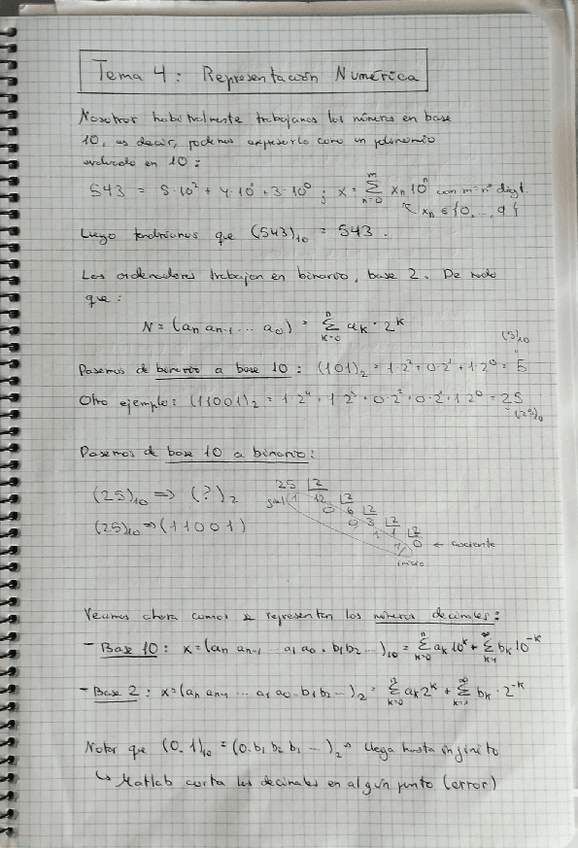 Tema 4: Representación Numérica
Nosotros habitualmente trabajamos los números en base
10, es decir, podemos expresarlo como un polinomio
evaluado en 10:
543 = 5·10² + 4·10¹ + 3·10⁰ ; x = Σ_{n=0}^{m} xₙ 10ⁿ con m = nº dígit.
↖ xₙ ∈ {0, ..., 9}
Luego tendríamos que (543)₁₀ = 543.
Los ordenadores trabajan en binario, base 2. De modo
que:
N = (aₙ aₙ₋₁ ... a₀) = Σ_{k=0}^{n} aₖ · 2ᵏ
(5)₁₀
Pasemos de binario a base 10: (101)₂ = 1·2² + 0·2¹ + 1·2⁰ = 5
Otro ejemplo: (11001)₂ = 1·2⁴ + 1·2³ + 0·2² + 0·2¹ + 1·2⁰ = 25
= (25)₁₀
Pasemos de base 10 a binario:
25 |2
(25)₁₀ => (?)₂ final 1 12 |2
0 6 |2
(25)₁₀ => (11001) 0 3 |2
1 1 |2
1 0 ← cociente
inicio
Veamos ahora como se representan los números decimales:
- Base 10: x = (aₙ aₙ₋₁ ... a₁ a₀ . b₁ b₂ ...)₁₀ = Σ_{k=0}^{n} aₖ 10ᵏ + Σ_{k=1}^{∞} bₖ 10⁻ᵏ
- Base 2: x = (aₙ aₙ₋₁ ... a₁ a₀ . b₁ b₂ ...)₂ = Σ_{k=0}^{n} aₖ 2ᵏ + Σ_{k=1}^{∞} bₖ · 2⁻ᵏ
Notar que (0.1)₁₀ = (0.b₁ b₂ b₃ ...)₂ llega hasta infinito
↳ Matlab corta los decimales en algún punto (error)